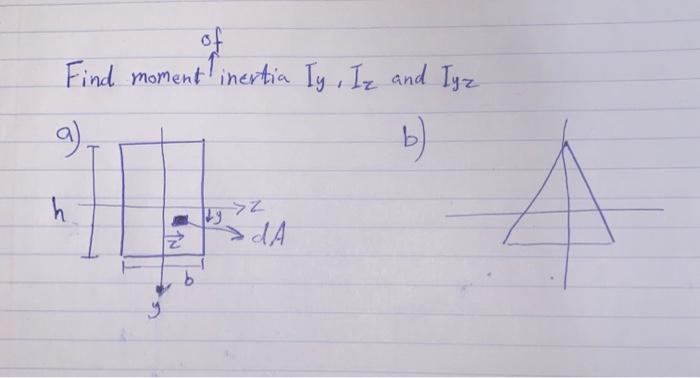 of
Find moment inertia Iy, Iz and Iyz
a)
b)
h
z
y
z
dA
b
y